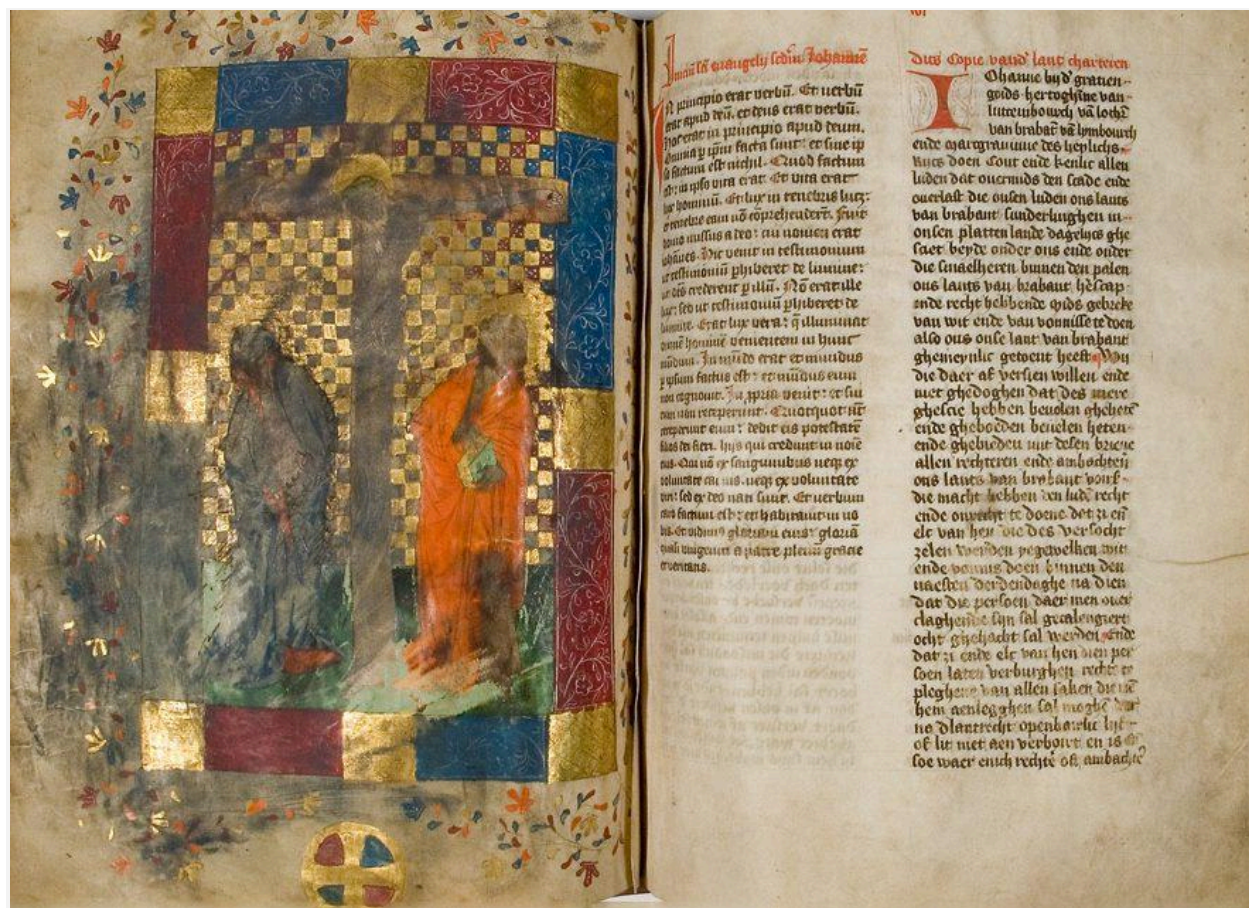 Inicium sancti evangelij secundum Johannem
In principio erat verbū. Et uerbū
erat apud deū. et deus erat verbū.
Hoc erat in principio apud deum.
Omnia p ipm facta sunt: et sine ip
so factum est nichil. Quod factum
est: in ipso vita erat. Et vita erat
lux hominum. Et lux in tenebris lucet:
et tenebre eam nō cōprehenderūt. Fuit
homo missus a deo: cui nomen erat
iohannes. Hic venit in testimonium
ut testimonium phiberet de lumine:
ut oēs crederent p illū. Nō erat ille
lux: sed ut testimoniū phiberet de
lumine. Erat lux vera: q̄ illuminat
omnē hominē venientem in hunc
mūdum. In mūdo erat et mundus
p ipsum factus est: et mūdus eum
non cognouit. In ppria venit: et sui
eum non receperunt. Quotquot aūt
receperunt eum: dedit eis potestatē
filios dei fieri. hijs qui credunt in noīe
eius. Qui nō ex sanguinibus neqz ex
voluntate carnis. neqz ex voluntate
viri: sed ex deo nati sunt. Et verbum
caro factum est: et habitauit in no
bis. Et vidimus gloriam eius: gloriā
quasi vnigeniti a patre plenū gracie
et veritatis.
Dits Copie vand' lant charteren
Iohanne bijd' gratien
goids hertoghīne van
lutzembourch vā loth'
van brabāt vā lymbourch
ende marcgrauinne des heylichs
rijcs doen cont ende kenlic allen
luden dat ouermids den scade ende
ouerlast die onsen luden ons lants
van brabant sunderlinghen in
onsen platten lande dagelijcs ghe
sciet beyde onder ons ende onder
die smaelheren binnen den palen
ons lants van brabant hēscap
ende recht hebbende mids gebreke
van wit ende van vonnisse te doen
also ons onse lant van brabant
ghemeynlic getoent heeft Wy
die daer af versien willen ende
niet ghedoghen dat des meer
ghescie hebben beuolen ghehetē
ende gheboeden beuelen heten
ende ghebieden mit desen brieue
allen rechteren ende ambachten
ons lants van brabant voirs.
die macht hebben den ludē recht
ende onrecht te doene dat zi en̄
elc van hen die des versocht
zelen werden yegewelken wit
ende vonnis doen binnen den
naesten derdendaghe na dien
dat die persoen daer men ouer
claghende sijn sal gecalengiert
ocht ghehacht sal werden Ende
dat zi ende elc van hen dien per
soen laten verburghen rechts te
pleghene van allen saken die mē
hem aenlegghen sal moghē
na dlantrecht openbaerlic
of lit niet aen verbort en is
soe waer enich rechtē oft ambachtē